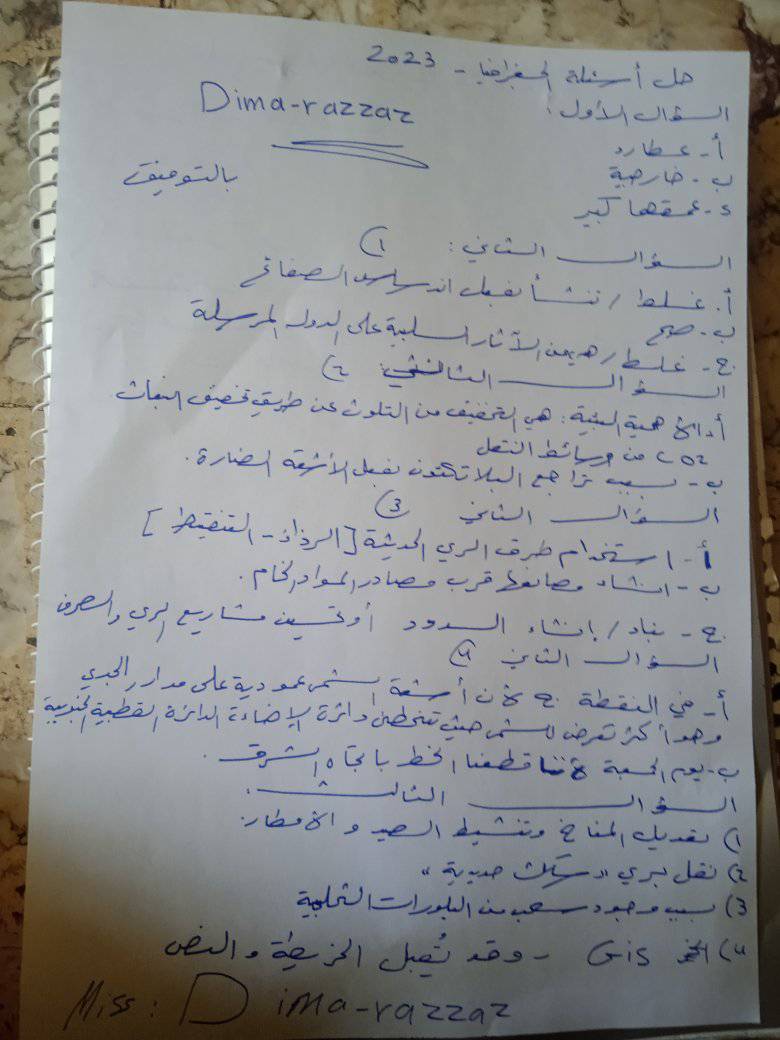 حل أسئلة الجغرافيا - 2023
Dima-razzaz
السؤال الأول:
أ- عطارد
ب- خارجية
د- عمقها كبير
بالتوفيق
السؤال الثاني: (1
أ. غلط / تنشأ بفعل اندساس الصفائح
ب- صح
ج- غلط / هي من الآثار السلبية على الدولة المرسلة
السؤال الثاني (2
أ. الأهمية البيئية: هي التخفيف من التلوث عن طريق تخفيف انبعاث
CO2 من وسائط النقل
ب- بسبب تراجع البلانكتون بفعل الأشعة الضارة.
السؤال الثاني (3
أ- استخدام طرق الري الحديثة [الرذاذ - التنقيط]
ب- انشاء مصانعها قرب مصادر المواد الخام.
ج- بناء / إنشاء السدود أو تحسين مشاريع الري والصرف
السؤال الثاني (4
أ- في النقطة ج لأن أشعة الشمس عمودية على مدار الجدي
وهو أكثر تعرض للشمس حيث تتخطى دائرة الإضاءة الدائرة القطبية الجنوبية
ب- يوم الجمعة لأننا قطعنا الخط باتجاه الشرق.
السؤال الثالث:
1) تعديل المناخ وتنشيط الصيد والأمطار.
2) نقل بري "سكك حديدية"
3) بسبب وجود سحب من البلورات الثلجية
4) Gis - وقد تُقبل الخريطة والنص
Miss: Dima-razzaz